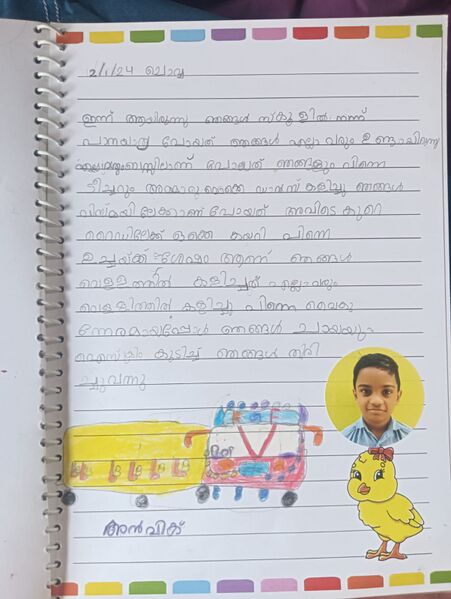 2/1/24 ചൊവ്വ
ഇന്ന് ആയിരുന്നു ഞങ്ങൾ സ്കൂളിൽ നിന്ന്
പഠനയാത്ര പോയത് ഞങ്ങൾ എല്ലാവരും ഉണ്ടായിരുന്നു
ബസ്സിലാണ് പോയത് ഞങ്ങളും പിന്നെ
ടീച്ചറും ഡാൻസ് കളിച്ചു ഞങ്ങൾ
പോയത് അവിടെ കുറെ
റൈഡിലേക്ക് ഒക്കെ കയറി പിന്നെ
ഉച്ചയ്ക്ക് ശേഷം ആണ് ഞങ്ങൾ
വെള്ളത്തിൽ കളിച്ചത് എല്ലാവരും
വെള്ളത്തിൽ കളിച്ചു പിന്നെ വൈകു
ന്നേരമായപ്പോൾ ഞങ്ങൾ ചായയും
ഐസ്ക്രീം കുടിച്ച് ഞങ്ങൾ തിരി
ച്ചുവന്നു
അൻവിക്